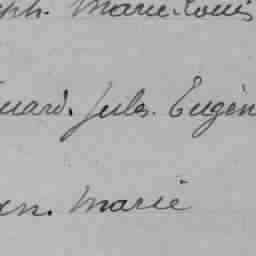 eph. Marie. Louis
uard. Jules. Eugèn
en. Marie